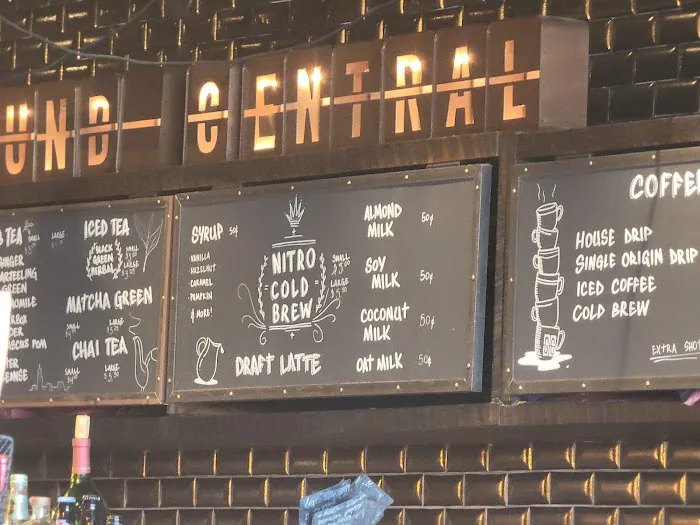 UND CENTRAL
TEA
GINGER
DARJEELING
GREEN
ICED TEA
BLACK
GREEN
HERBAL
SMALL
LARGE
MATCHA GREEN
SMALL
LARGE
CHAI TEA
SMALL
LARGE
SYRUP 50¢
VANILLA
HAZELNUT
CARAMEL
PUMPKIN
& MORE!
NITRO
COLD
BREW
SMALL
LARGE
DRAFT LATTE
ALMOND
MILK 50¢
SOY
MILK 50¢
COCONUT
MILK 50¢
OAT MILK 50¢
COFFEE
HOUSE DRIP
SINGLE ORIGIN DRIP
ICED COFFEE
COLD BREW
EXTRA SHOT